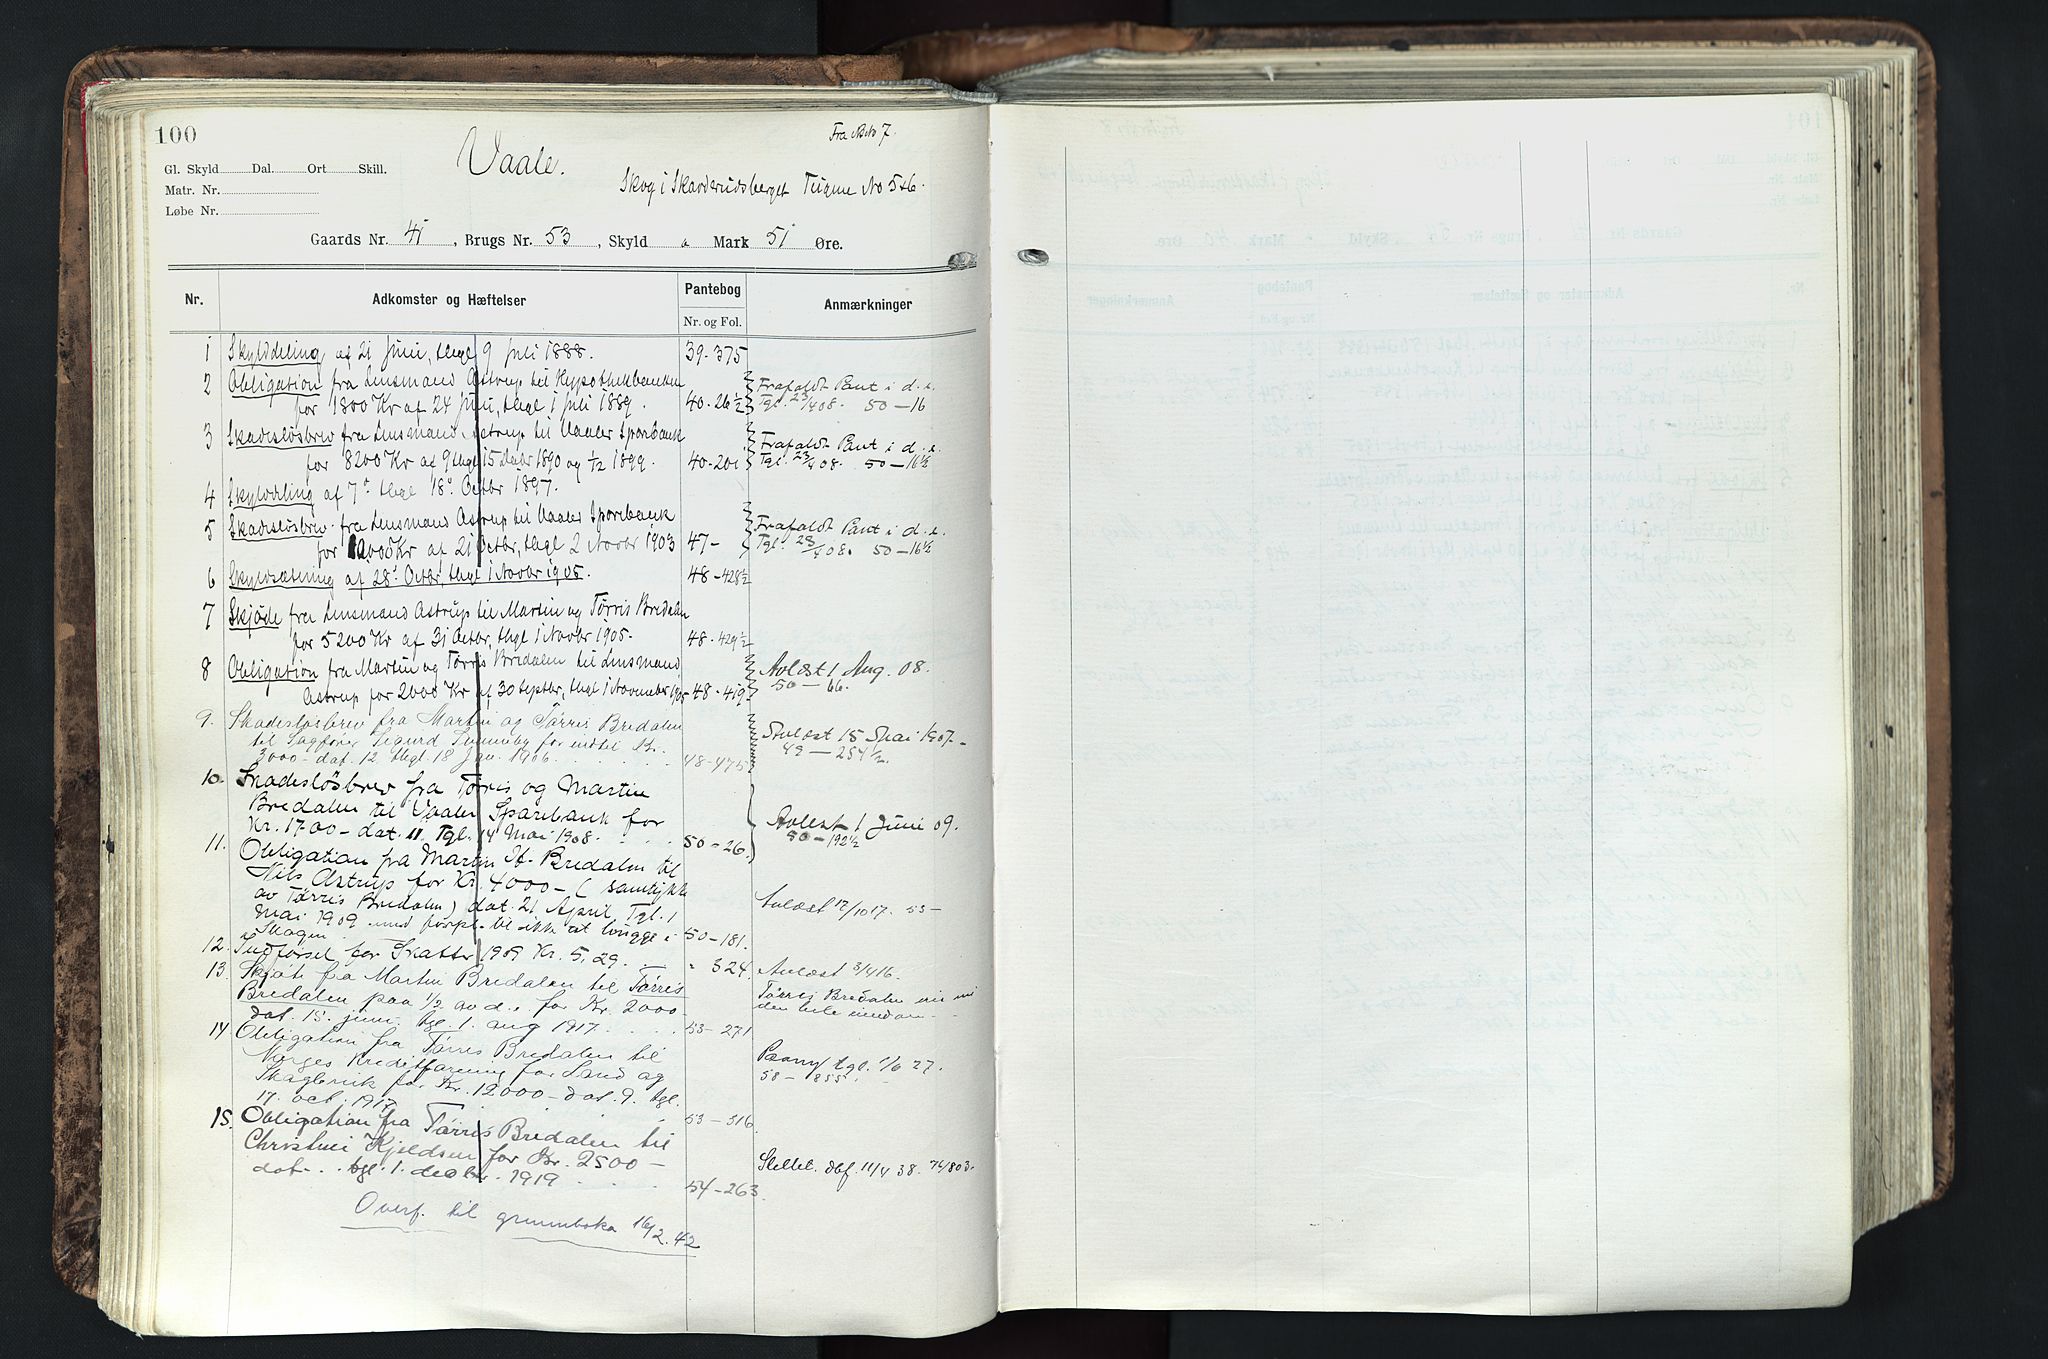 100
Vaale.
Fra No 7.
Gl. Skyld Dal. Ort Skill.
Matr. Nr.
Løbe Nr.
Skog i Skarderudsberget Teigene No 5+6.
Gaards Nr. 41, Brugs Nr. 53, Skyld Mark 51 Øre.
Nr. Adkomster og Hæftelser Pantebog Anmærkninger
Nr. og Fol.
1 Skylddeling af 21 Juni, thgl 9 Juli 1888. 39-375
2 Obligation fra Lensmand Astrup til Hypothekbanken Frafaldt Pant i d. e.
for 1800 Kr af 24 Juni, thgl 1 Juli 1889. 40-26½ Tgl. 23/4 08. 50-16
3 Skadesløsbrev fra Lensmand Astrup til Vaaler Sparebank Frafaldt Pant i d. e.
for 8200 Kr af 9 thgl 15 1890 og 1/2 1899. 40-201 Tgl. 23/4 08. 50-16½
4 Skylddeling af 7' thgl 18' Octbr 1897.
5 Skadesløsbrev fra Lensmand Astrup til Vaaler Sparebank Frafaldt Pant i d. e.
for Kr af 21 Octbr, thgl 2 Novbr 1903 47- Tgl. 23/4 08. 50-16½
6 Skyldsætning af 28' Octbr, thgl 1 Novbr 1905. 48-428½
7 Skjøde fra Lensmand Astrup til Martin og Tørris Bredalen
for 5200 Kr af 31 Octbr, thgl 1 Novbr 1905. 48-429½
8 Obligation fra Martin og Tørris Bredalen til Lensmand Avlæst 1 Aug. 08.
Astrup for 2000 Kr af 30 Septbr, thgl 1 November 1905 48-419 50-66.
9. Skadesløsbrev fra Martin og Tørris Bredalen Avlæst 15 Mai 1907.
til Sagfører Sigurd for indtil Kr.
3000- dat. 12 thgl. 18 Jan. 1906 48-475 49-254½.
10. Skadesløsbrev fra Tørris og Martin
Bredalen til Vaaler Sparebank for Avlæst 1 Juni 09.
Kr. 1700- dat. 11 Tgl. 14 Mai 1908. 50-26. 50-192½
11. Obligation fra Martin H. Bredalen til
Nils Astrup for Kr. 4000- (samtykke
av Tørris Bredalen) dat. 21 April, Tgl. 1 Avlæst 12/10 17. 53-
Mai 1909 med forpl. til ikke at hugge i
Skogen. 50-181.
12. Utførsel for Skatter 1909 Kr. 5,29. " 324. Avlæst 3/4 16.
13. Skjøte fra Martin Bredalen til Tørris Tørris Bredalen
Bredalen paa 1/2 av d. e. for Kr. 2000- den hele eiendom.
dat. 15. juni tgl. 1. aug 1917. 53-271
14 Obligation fra Tørris Bredalen til
Norges Kreditforening for Land og tgl. 1/6 27.
Skogbruk for Kr. 12000- dat. 9. tgl. 58-855.
17. oct. 1917 53-316
15. Obligation fra Tørris Bredalen til
Christine Kjeldsen for Kr. 2500- Slettet. dbf. 11/4 38. 74/803.
dat. tgl. 1. decbr. 1919 54-263.
Overf. til grunnboka 16/2.42